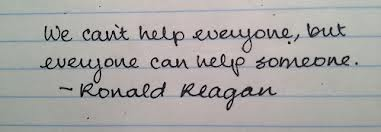 We can't help everyone, but
everyone can help someone.
- Ronald Reagan